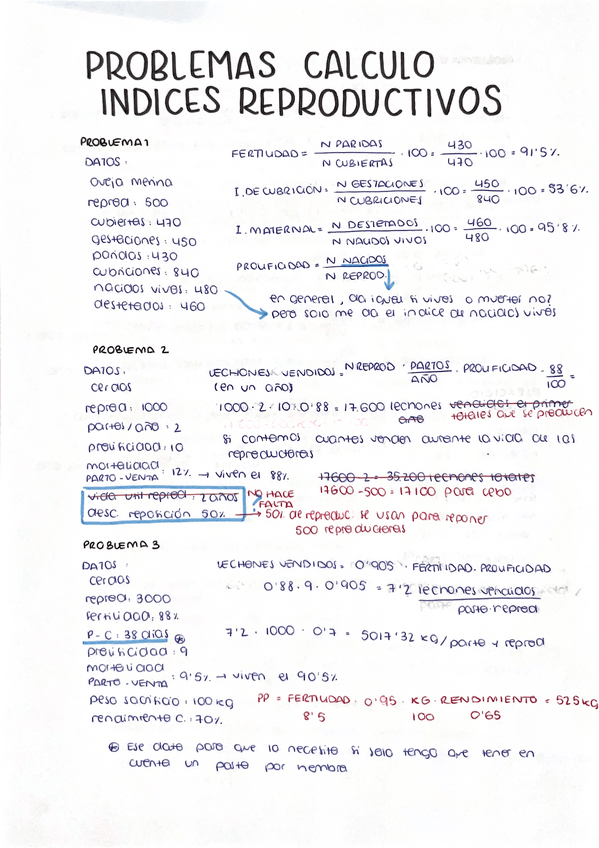 PROBLEMAS CALCULO
INDICES REPRODUCTIVOS
PROBLEMA 1
DATOS:
oveja merina
reprod: 500
cubiertas: 470
gestaciones: 450
paridas: 430
cubriciones: 840
nacidos vivos: 480
destetados: 460
FERTILIDAD = N PARIDAS / N CUBIERTAS · 100 = 430 / 470 · 100 = 91'5%
I. DE CUBRICIÓN = N GESTACIONES / N CUBRICIONES · 100 = 450 / 840 · 100 = 53'6%
I. MATERNAL = N DESTETADOS / N NACIDOS VIVOS · 100 = 460 / 480 · 100 = 95'8%
PROLIFICIDAD = N NACIDOS / N REPROD.
en general, da igual si vivos o muertos no?
pero solo me da el indice de nacidos vivos
PROBLEMA 2
DATOS:
cerdos
reprod: 1000
partos/año: 2
prolificidad: 10
mortalidad
PARTO-VENTA: 12% → viven el 88%
vida util reprod: 2 años
desc. reposición 50%
NO HACE
FALTA
?
LECHONES VENDIDOS = N REPROD · PARTOS / AÑO · PROLIFICIDAD · 88 / 100 =
(en un año)
1000 · 2 · 10 · 0'88 = 17.600 lechones vendidos el primer
año
totales que se producen
si contamos cuantos venden durante la vida de las
reproductoras
17600 · 2 = 35.200 lechones totales
17600 - 500 = 17100 para cebo
→ 50% de reproduc. se usan para reponer
500 reproductoras
PROBLEMA 3
DATOS:
cerdos
reprod: 3000
fertilidad: 88%
P-C: 38 dias ⊕
prolificidad: 9
mortalidad
PARTO-VENTA: 9'5% → viven el 90'5%
peso sacrificio: 100 kg
rendimiento C.: 70%
LECHONES VENDIDOS = 0'905 · FERTILIDAD · PROLIFICIDAD
0'88 · 9 · 0'905 = 7'2 lechones vendidos / parto · reprod
7'2 · 1000 · 0'7 = 5017'32 KG/parto y reprod
PP = FERTILIDAD · 0'95 · KG · RENDIMIENTO = 525 KG
8'5 100 0'65
⊕ Ese dato para que lo necesito si solo tengo que tener en
cuenta un parto por hembra